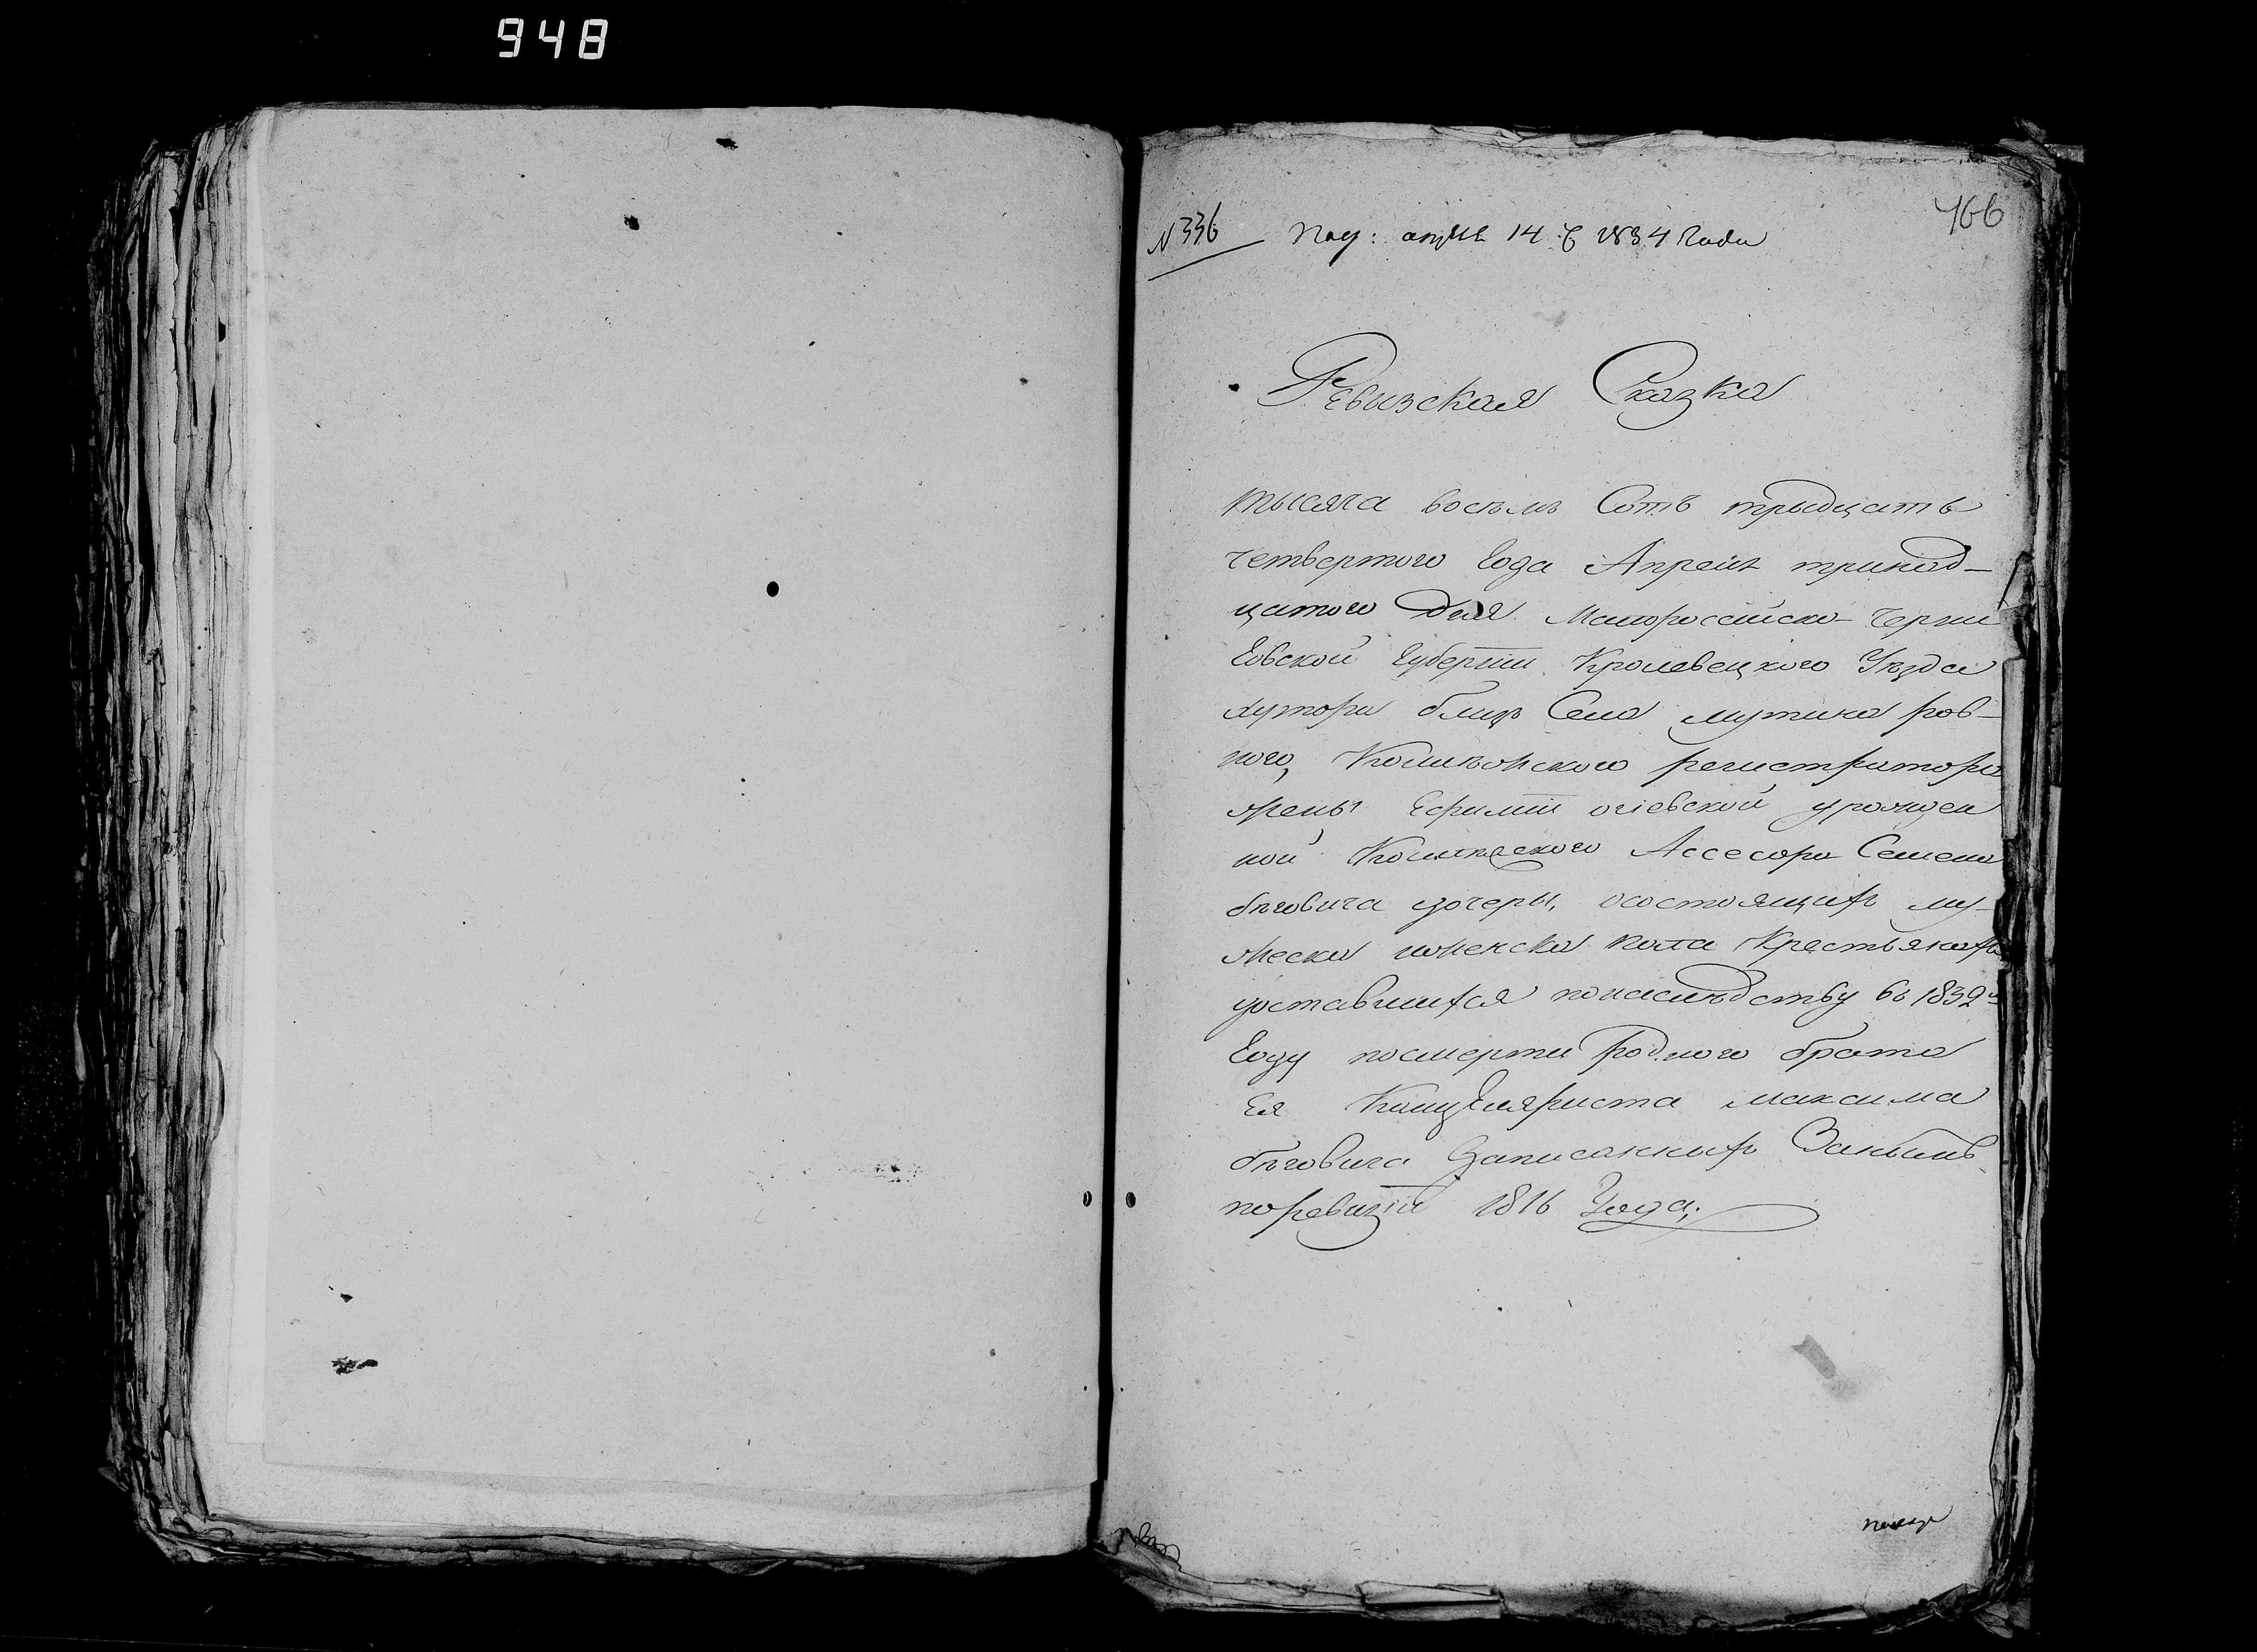 948
466
N 336 Пол: апреля 14 г 1834 Года
Ревизская Сказка
тысяча восемь Сотъ трыдцать
четвертого Года Апреля тринад-
цатого Дня Малороссийско-Черни
Говской Губернии Кролевецкого Уезда
хутора близъ Села мутина ров-
ного, Колижского регистратора
жены Ефимии огіевской урожден
ной Колижского Ассесора Семена
бѣговича дочеры, осостоящихъ му-
жеска иженска пола Крестьянахъ
доставшихся понаследству въ 1832м
Году посмерти Родного брата
Ея Канцеляриста максима
бѣговича Записанныхъ Занымъ
поревизіи 1816 Года;